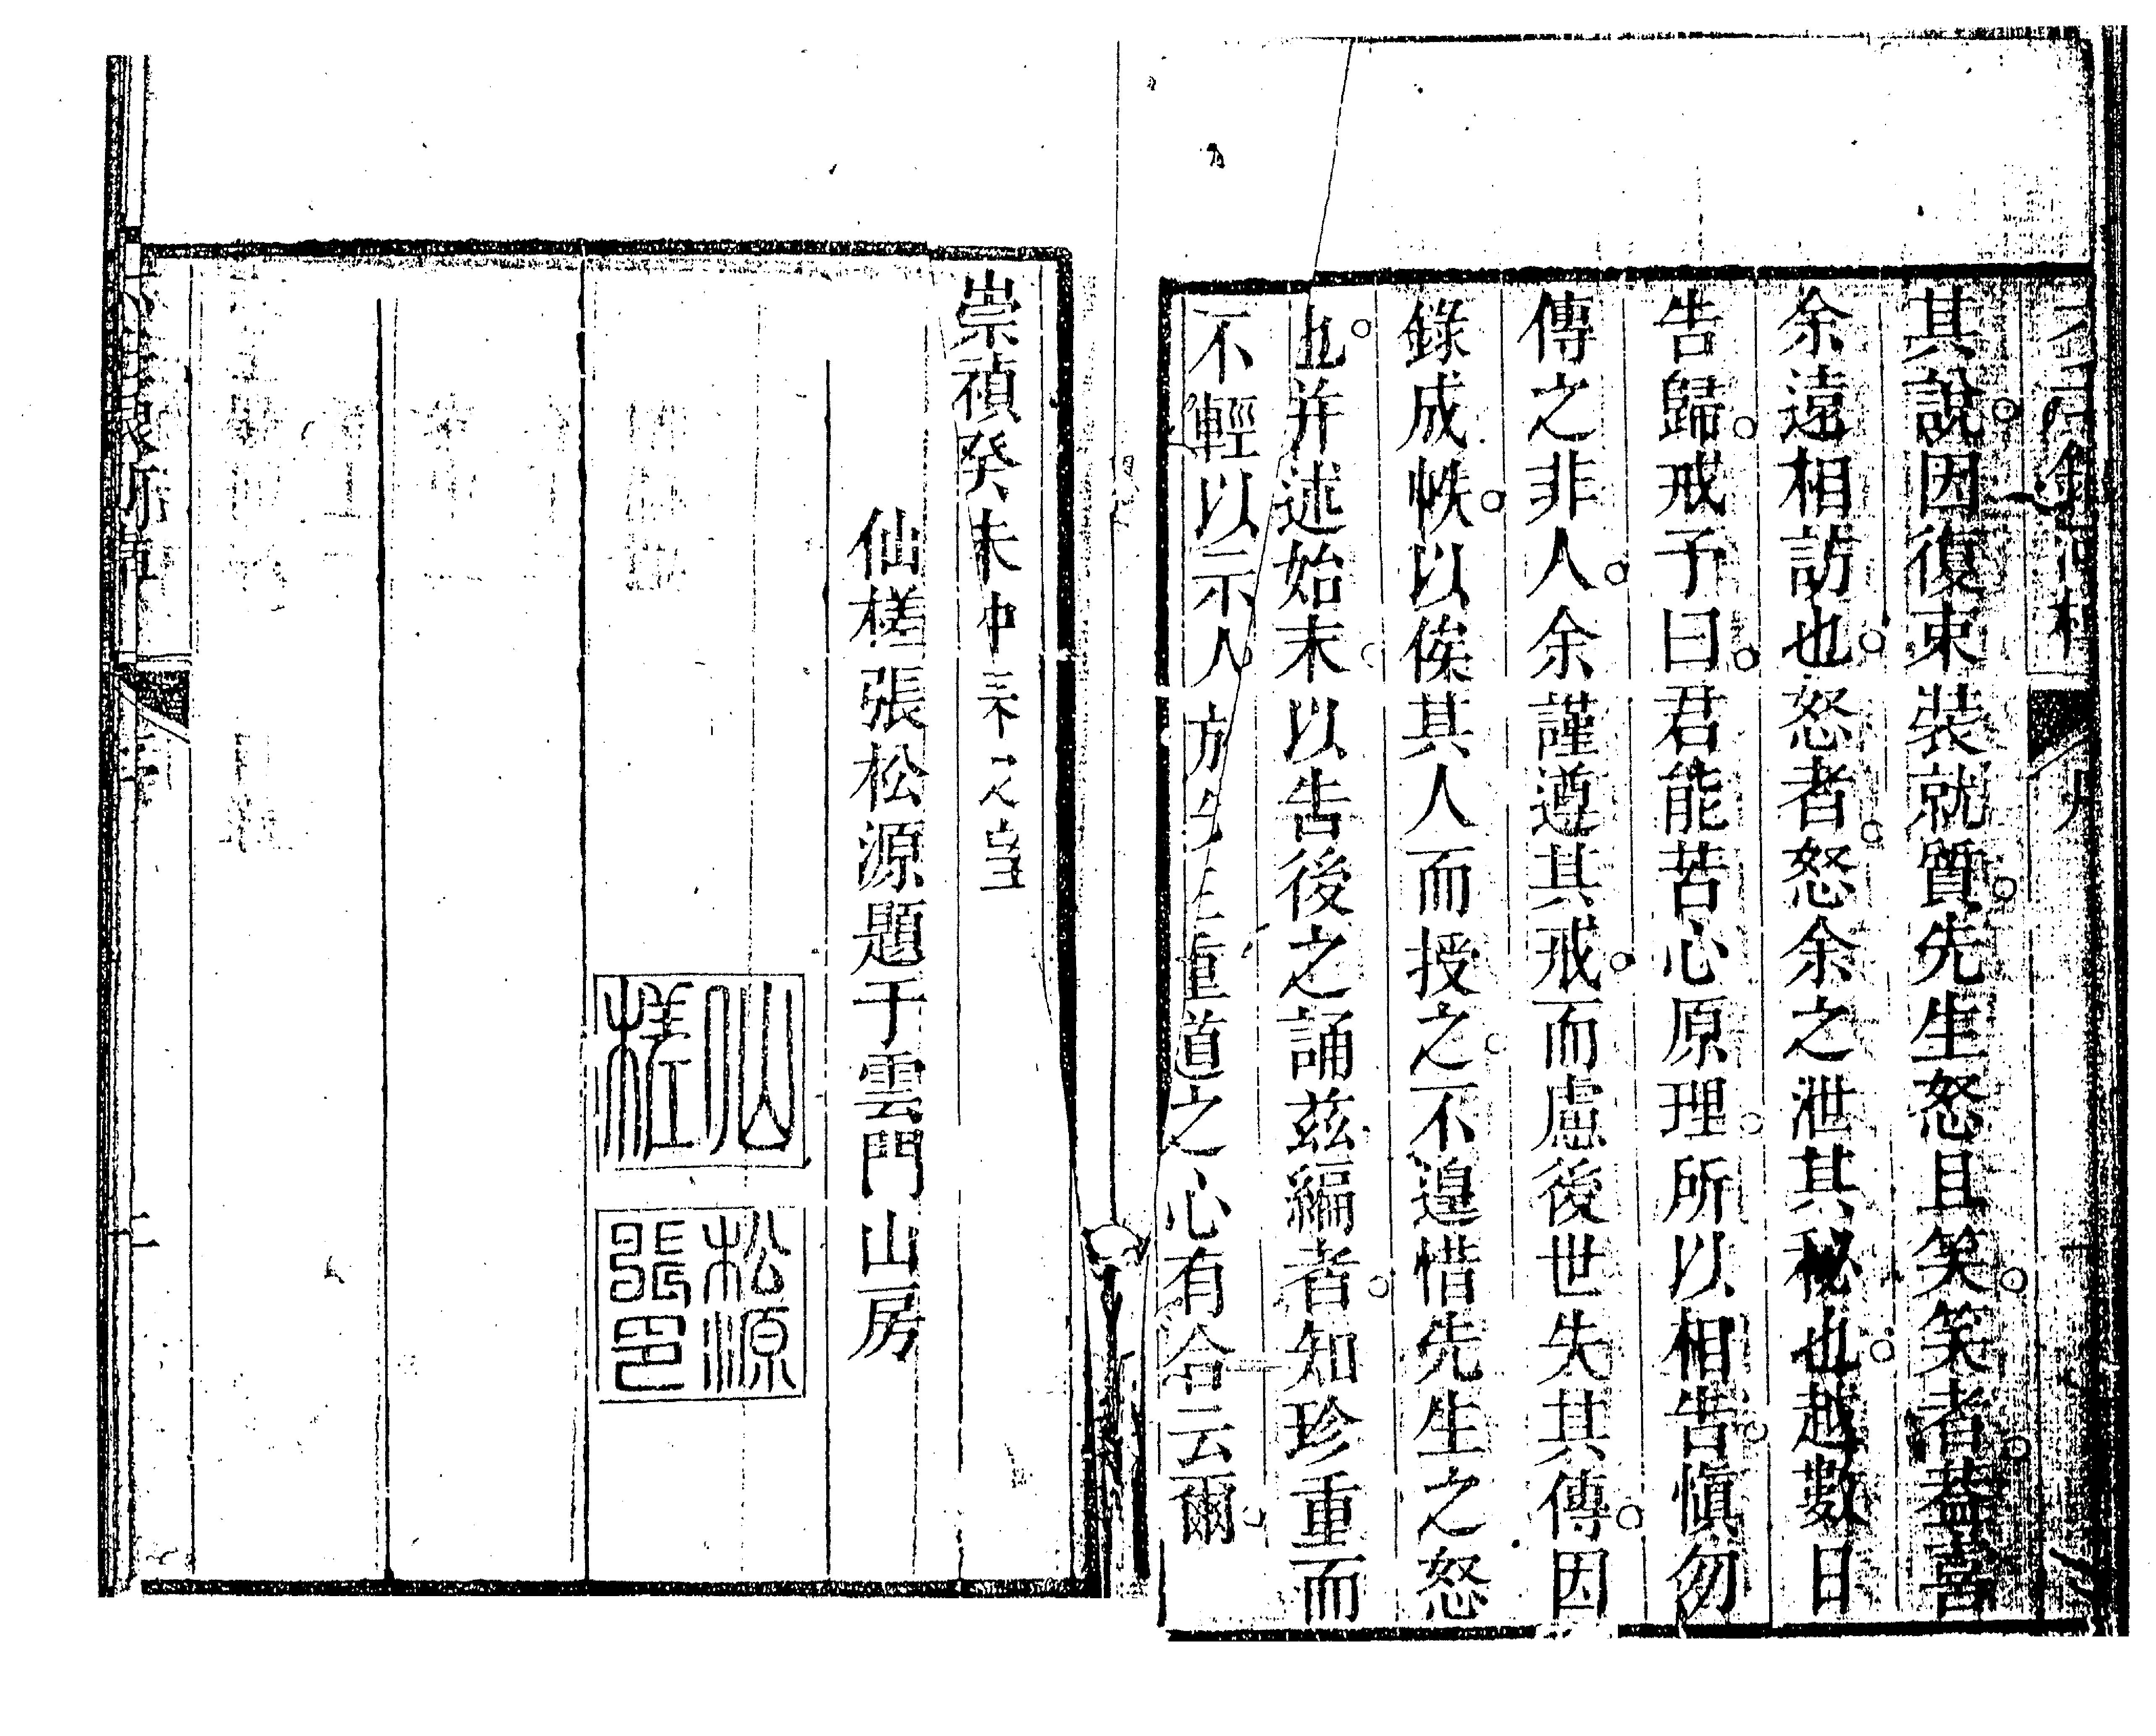 其說因復束裝就質先生怒且笑笑者葢喜
余遠相訪也怒者怒余之泄其秘也越數日
告歸戒予曰君能苦心原理所以相告慎勿
傳之非人余謹遵其戒而慮後世失其傳因
錄成帙以俟其人而授之不遑惜先生之怒
也并述始末以告後之誦茲編者知珍重而
不輕以示人方先生重道之心有合云爾
崇禎癸未中
仙槎張松源題于雲門山房
仙槎
松源張印